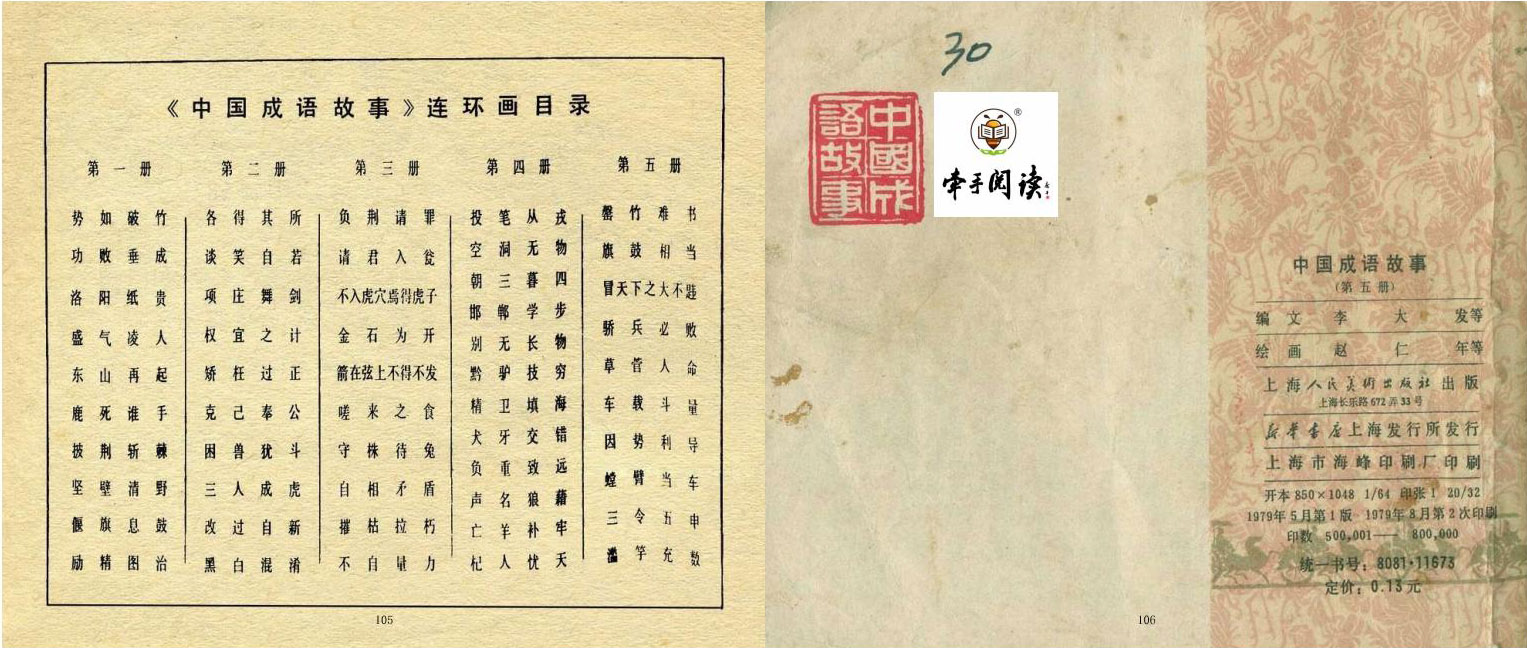 《中国成语故事》连环画目录
第一册
势如破竹
功败垂成
洛阳纸贵
盛气凌人
东山再起
鹿死谁手
披荆斩棘
坚壁清野
偃旗息鼓
励精图治
第二册
各得其所
谈笑自若
项庄舞剑
权宜之计
矫枉过正
克己奉公
困兽犹斗
三人成虎
改过自新
黑白混淆
第三册
负荆请罪
请君入瓮
不入虎穴焉得虎子
金石为开
箭在弦上不得不发
嗟来之食
守株待兔
自相矛盾
摧枯拉朽
不自量力
第四册
投笔从戎
空洞无物
朝三暮四
邯郸学步
别无长物
黔驴技穷
精卫填海
犬牙交错
负重致远
声名狼藉
亡羊补牢
杞人忧天
第五册
罄竹难书
旗鼓相当
冒天下之大不韪
骄兵必败
草菅人命
车载斗量
因势利导
螳臂当车
三令五申
滥竽充数
105
30
中國成
語故事
®
牵手阅读
中国成语故事
(第五册)
编文 李大发等
绘画 赵仁年等
上海人民美術出版社出版
上海长乐路672弄33号
新華書店上海发行所发行
上海市海峰印刷厂印刷
开本850×1048 1/64 印张1 20/32
1979年5月第1版 1979年8月第2次印刷
印数 500,001——800,000
统一书号：8081·11673
定价：0.13元
106